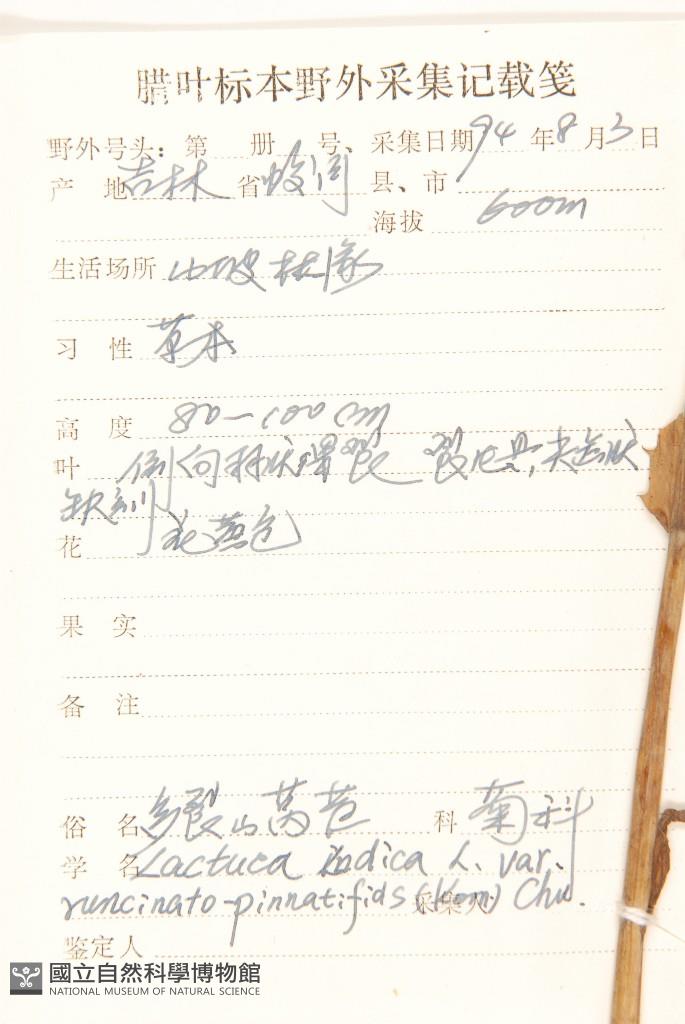 腊叶标本野外采集记载笺
野外号头：第 册 号、采集日期 94 年 8 月 3 日
产 地 吉林 省 蛟河 县、市
海拔 600m
生活场所 山坡林缘
习 性 草本
高 度 80-100cm
叶 倒向 裂
缺刻
花 花黄色
果 实
备 注
俗 名 多裂山莴苣 科 菊科
学 名 Lactuca indica L. var.
runcinato-pinnatifids (Kom) Chu. 采集人
鉴定人
國立自然科學博物館
NATIONAL MUSEUM OF NATURAL SCIENCE